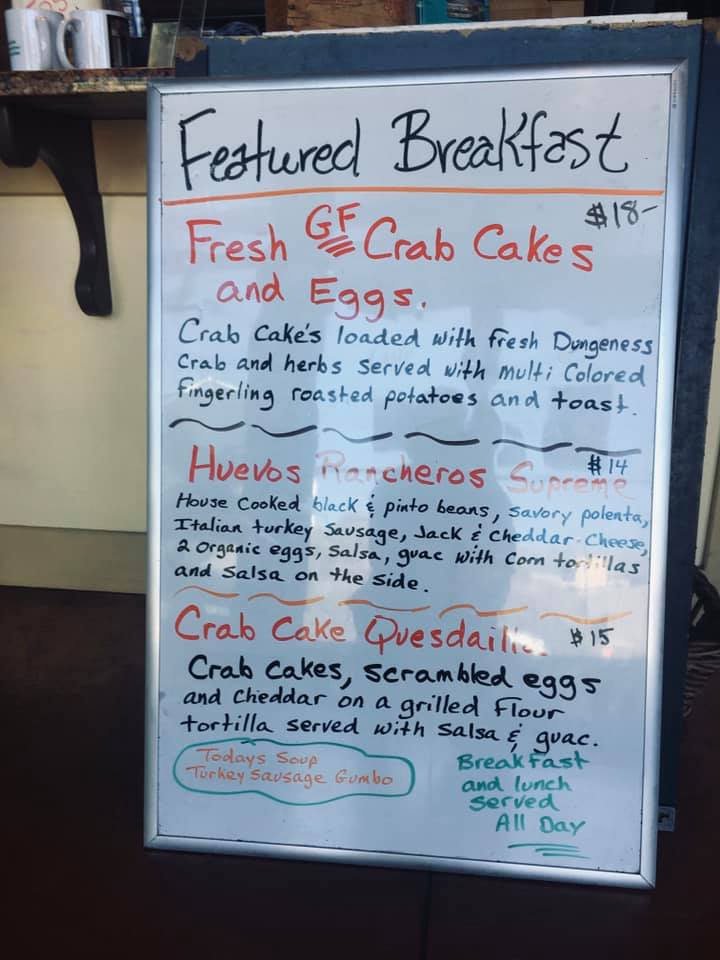 Featured Breakfast
$18-
Fresh GF Crab Cakes
and Eggs.
Crab Cake's loaded with fresh Dungeness
Crab and herbs served with multi Colored
fingerling roasted potatoes and toast.
Huevos Rancheros Supreme $14
House Cooked black & pinto beans, savory polenta,
Italian turkey Sausage, Jack & Cheddar Cheese,
2 organic eggs, Salsa, guac with Corn tortillas
and Salsa on the side.
Crab Cake $15
Crab Cakes, scrambled eggs
and Cheddar on a grilled Flour
tortilla served with Salsa & guac.
Todays Soup
Turkey Sausage Gumbo
Breakfast
and lunch
Served
All Day